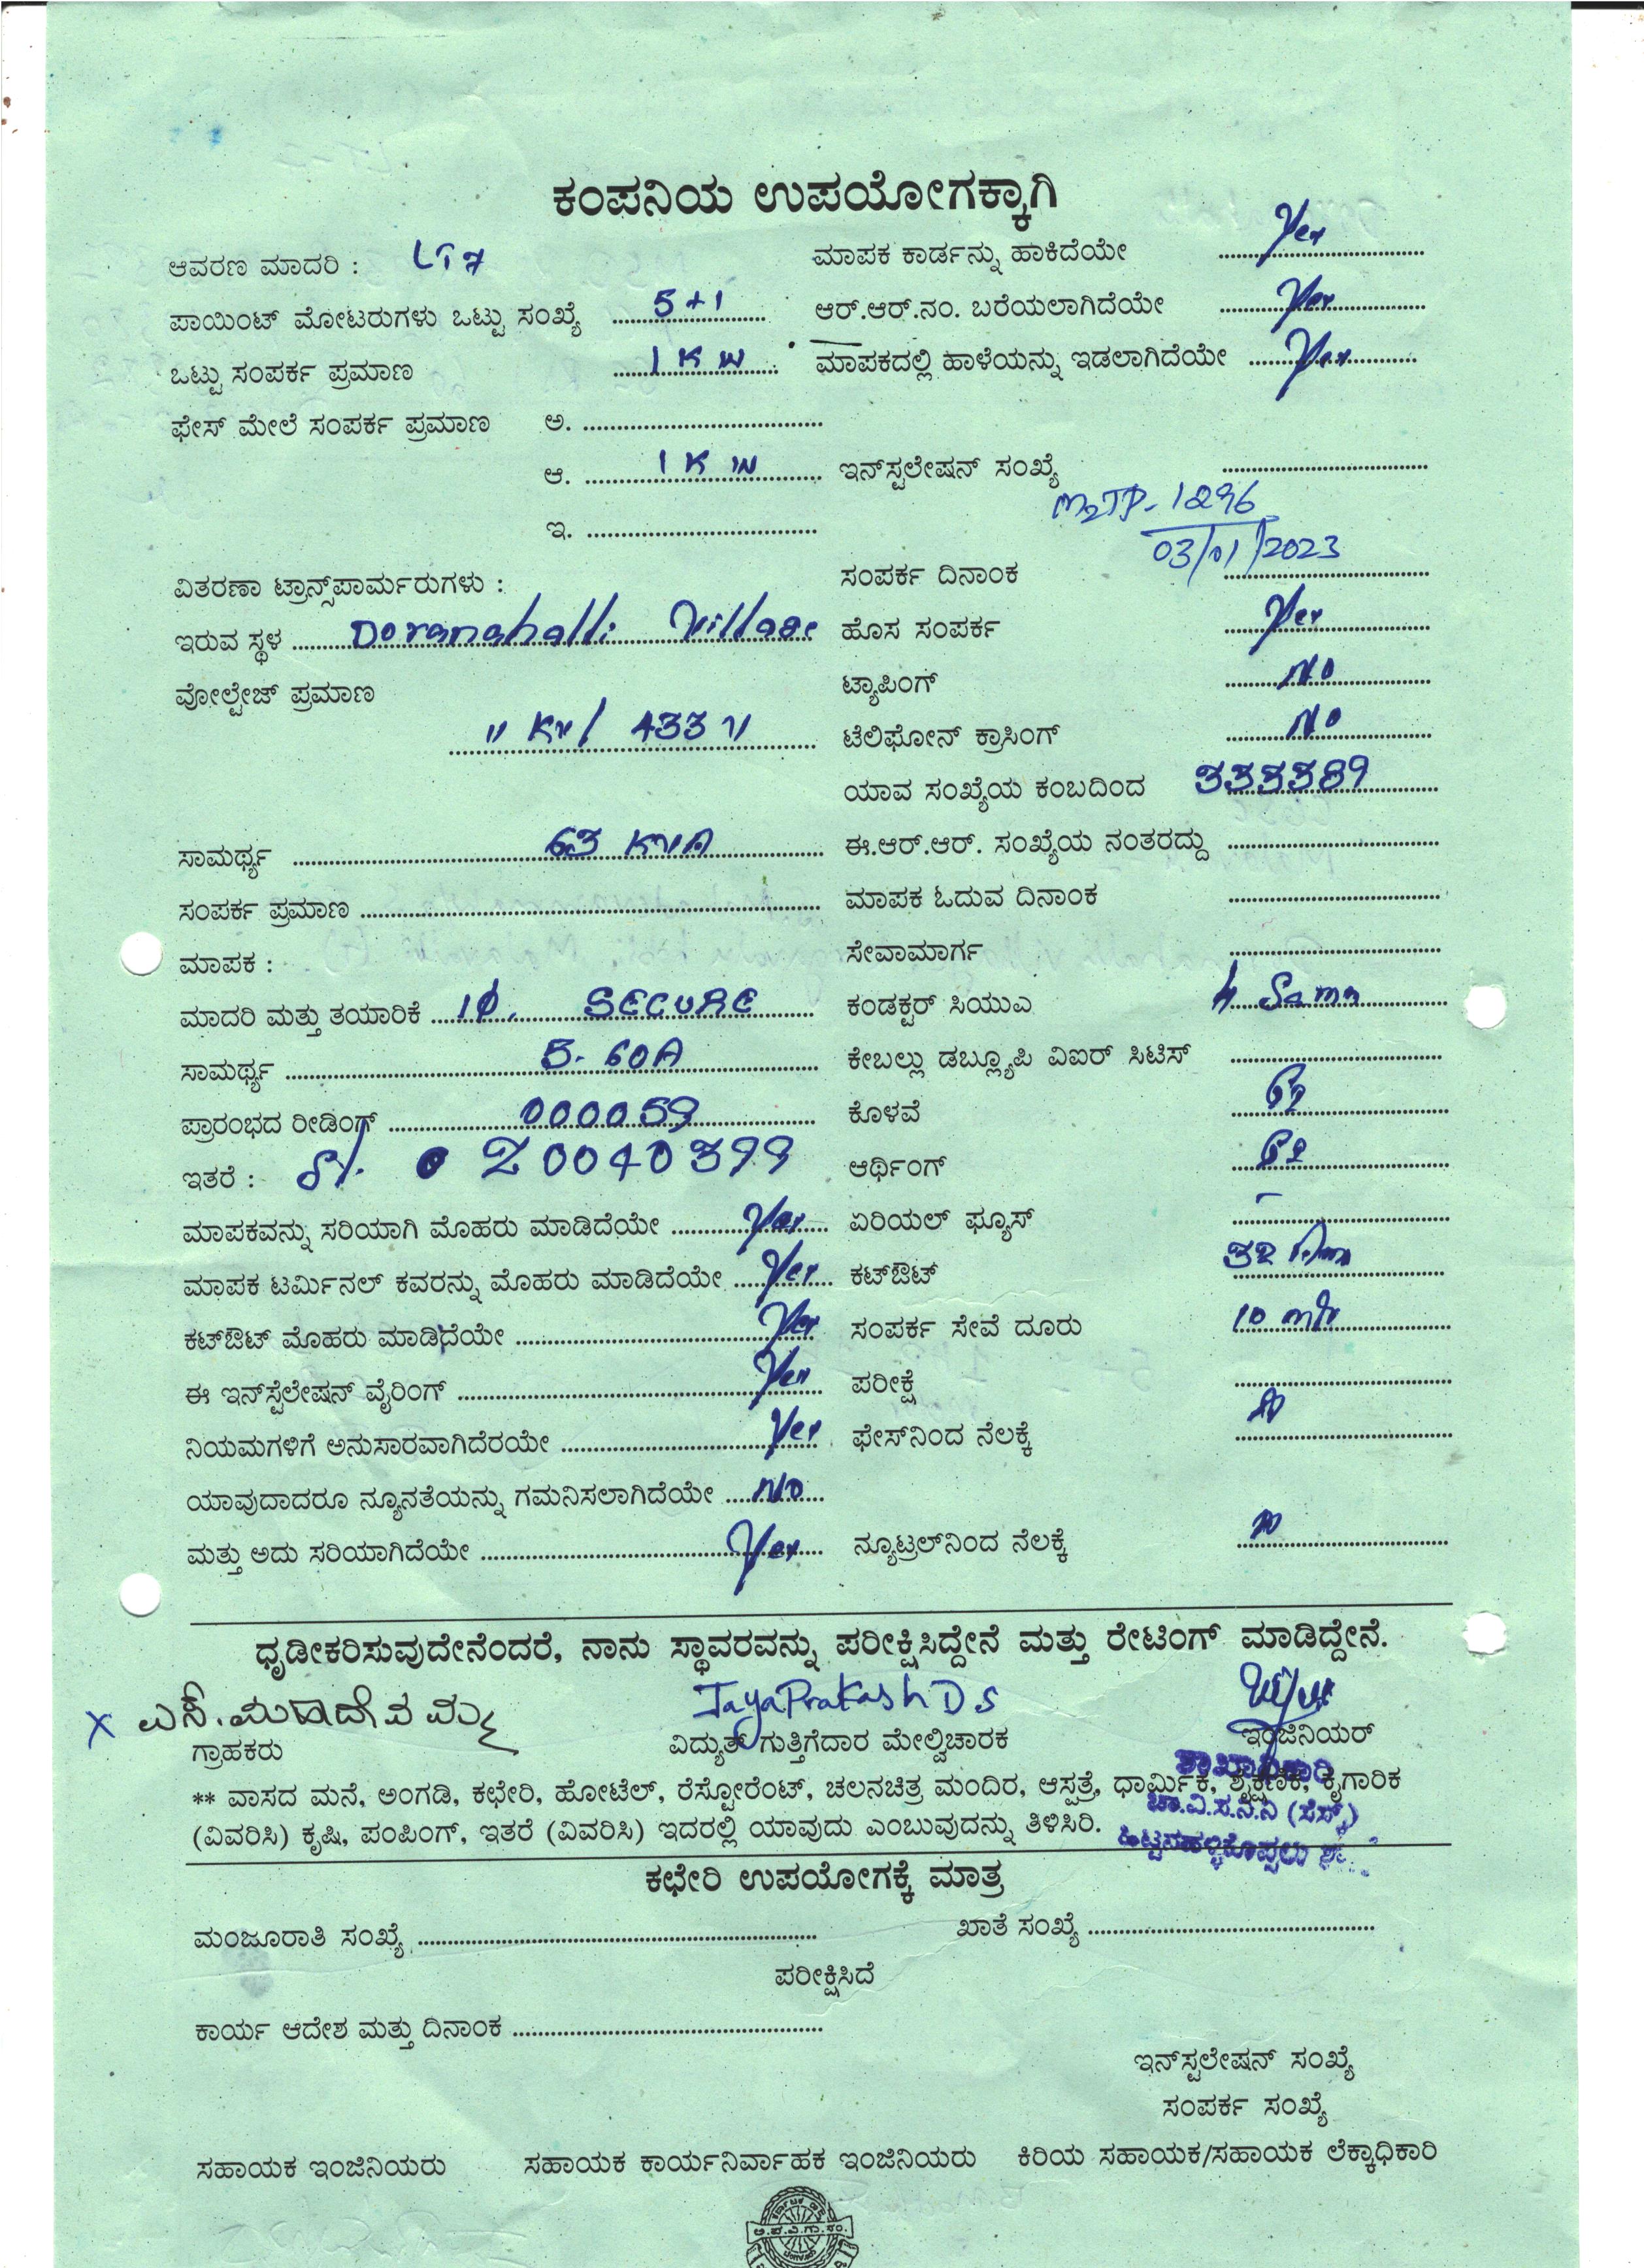 ಕಂಪನಿಯ ಉಪಯೋಗಕ್ಕಾಗಿ
ಆವರಣ ಮಾದರಿ : LT7 ಮಾಪಕ ಕಾರ್ಡನ್ನು ಹಾಕಿದೆಯೇ Yes
ಪಾಯಿಂಟ್ ಮೋಟರುಗಳು ಒಟ್ಟು ಸಂಖ್ಯೆ 5+1 ಆರ್.ಆರ್.ನಂ. ಬರೆಯಲಾಗಿದೆಯೇ Yes
ಒಟ್ಟು ಸಂಪರ್ಕ ಪ್ರಮಾಣ 1 KW ಮಾಪಕದಲ್ಲಿ ಹಾಳೆಯನ್ನು ಇಡಲಾಗಿದೆಯೇ Yes
ಫೇಸ್ ಮೇಲೆ ಸಂಪರ್ಕ ಪ್ರಮಾಣ ಅ.
ಆ. 1 KW ಇನ್‌ಸ್ಟಲೇಷನ್ ಸಂಖ್ಯೆ
M2TP-1296
ಇ.
03/01/2023
ವಿತರಣಾ ಟ್ರಾನ್ಸ್‌ಪಾರ್ಮರುಗಳು : ಸಂಪರ್ಕ ದಿನಾಂಕ
ಇರುವ ಸ್ಥಳ Doranahalli Village ಹೊಸ ಸಂಪರ್ಕ Yes
ವೋಲ್ಟೇಜ್ ಪ್ರಮಾಣ ಟ್ಯಾಪಿಂಗ್ NO
11 KV/ 433 V ಟೆಲಿಫೋನ್ ಕ್ರಾಸಿಂಗ್ NO
ಯಾವ ಸಂಖ್ಯೆಯ ಕಂಬದಿಂದ 333389
ಸಾಮರ್ಥ್ಯ 63 KVA ಈ.ಆರ್.ಆರ್. ಸಂಖ್ಯೆಯ ನಂತರದ್ದು
ಸಂಪರ್ಕ ಪ್ರಮಾಣ ಮಾಪಕ ಓದುವ ದಿನಾಂಕ
ಮಾಪಕ : ಸೇವಾಮಾರ್ಗ
ಮಾದರಿ ಮತ್ತು ತಯಾರಿಕೆ 1Φ, SECURE ಕಂಡಕ್ಟರ್ ಸಿಯುಎ
ಸಾಮರ್ಥ್ಯ 5-60A ಕೇಬಲ್ಲು ಡಬ್ಲ್ಯೂಪಿ ವಿಐರ್ ಸಿಟಿಸ್
ಪ್ರಾರಂಭದ ರೀಡಿಂಗ್ 000059 ಕೊಳವೆ
ಇತರೆ : Sl. 20040399 ಆರ್ಥಿಂಗ್
ಮಾಪಕವನ್ನು ಸರಿಯಾಗಿ ಮೊಹರು ಮಾಡಿದೆಯೇ Yes ಏರಿಯಲ್ ಫ್ಯೂಸ್ –
ಮಾಪಕ ಟರ್ಮಿನಲ್ ಕವರನ್ನು ಮೊಹರು ಮಾಡಿದೆಯೇ Yes ಕಟ್‌ಔಟ್ 32
ಕಟ್‌ಔಟ್ ಮೊಹರು ಮಾಡಿದೆಯೇ Yes ಸಂಪರ್ಕ ಸೇವೆ ದೂರು 10 mtr
ಈ ಇನ್‌ಸ್ಟೆಲೇಷನ್ ವೈರಿಂಗ್ Yes ಪರೀಕ್ಷೆ
ನಿಯಮಗಳಿಗೆ ಅನುಸಾರವಾಗಿದೆರಯೇ Yes ಫೇಸ್‌ನಿಂದ ನೆಲಕ್ಕೆ
ಯಾವುದಾದರೂ ನ್ಯೂನತೆಯನ್ನು ಗಮನಿಸಲಾಗಿದೆಯೇ NO
ಮತ್ತು ಅದು ಸರಿಯಾಗಿದೆಯೇ Yes ನ್ಯೂಟ್ರಲ್‌ನಿಂದ ನೆಲಕ್ಕೆ
ಧೃಡೀಕರಿಸುವುದೇನೆಂದರೆ, ನಾನು ಸ್ಥಾವರವನ್ನು ಪರೀಕ್ಷಿಸಿದ್ದೇನೆ ಮತ್ತು ರೇಟಿಂಗ್ ಮಾಡಿದ್ದೇನೆ.
X ಎಸ್. ಮಹಾದೇವಮ್ಮ JayaPrakash D S
ಗ್ರಾಹಕರು ವಿದ್ಯುತ್ ಗುತ್ತಿಗೆದಾರ ಮೇಲ್ವಿಚಾರಕ ಇಂಜಿನಿಯರ್
ಶಾಖಾಧಿಕಾರಿ
** ವಾಸದ ಮನೆ, ಅಂಗಡಿ, ಕಛೇರಿ, ಹೋಟೆಲ್, ರೆಸ್ಟೋರೆಂಟ್, ಚಲನಚಿತ್ರ ಮಂದಿರ, ಆಸ್ಪತ್ರೆ, ಧಾರ್ಮಿಕ, ಶೈಕ್ಷಣಿಕ, ಕೈಗಾರಿಕ
ಚಾ.ವಿ.ಸ.ನಿ.ನಿ (ಸೆಸ್ಕ್)
(ವಿವರಿಸಿ) ಕೃಷಿ, ಪಂಪಿಂಗ್, ಇತರೆ (ವಿವರಿಸಿ) ಇದರಲ್ಲಿ ಯಾವುದು ಎಂಬುವುದನ್ನು ತಿಳಿಸಿರಿ.
ಕಛೇರಿ ಉಪಯೋಗಕ್ಕೆ ಮಾತ್ರ
ಮಂಜೂರಾತಿ ಸಂಖ್ಯೆ ಖಾತೆ ಸಂಖ್ಯೆ
ಪರೀಕ್ಷಿಸಿದೆ
ಕಾರ್ಯ ಆದೇಶ ಮತ್ತು ದಿನಾಂಕ
ಇನ್‌ಸ್ಟಲೇಷನ್ ಸಂಖ್ಯೆ
ಸಂಪರ್ಕ ಸಂಖ್ಯೆ
ಸಹಾಯಕ ಇಂಜಿನಿಯರು ಸಹಾಯಕ ಕಾರ್ಯನಿರ್ವಾಹಕ ಇಂಜಿನಿಯರು ಕಿರಿಯ ಸಹಾಯಕ/ಸಹಾಯಕ ಲೆಕ್ಕಾಧಿಕಾರಿ